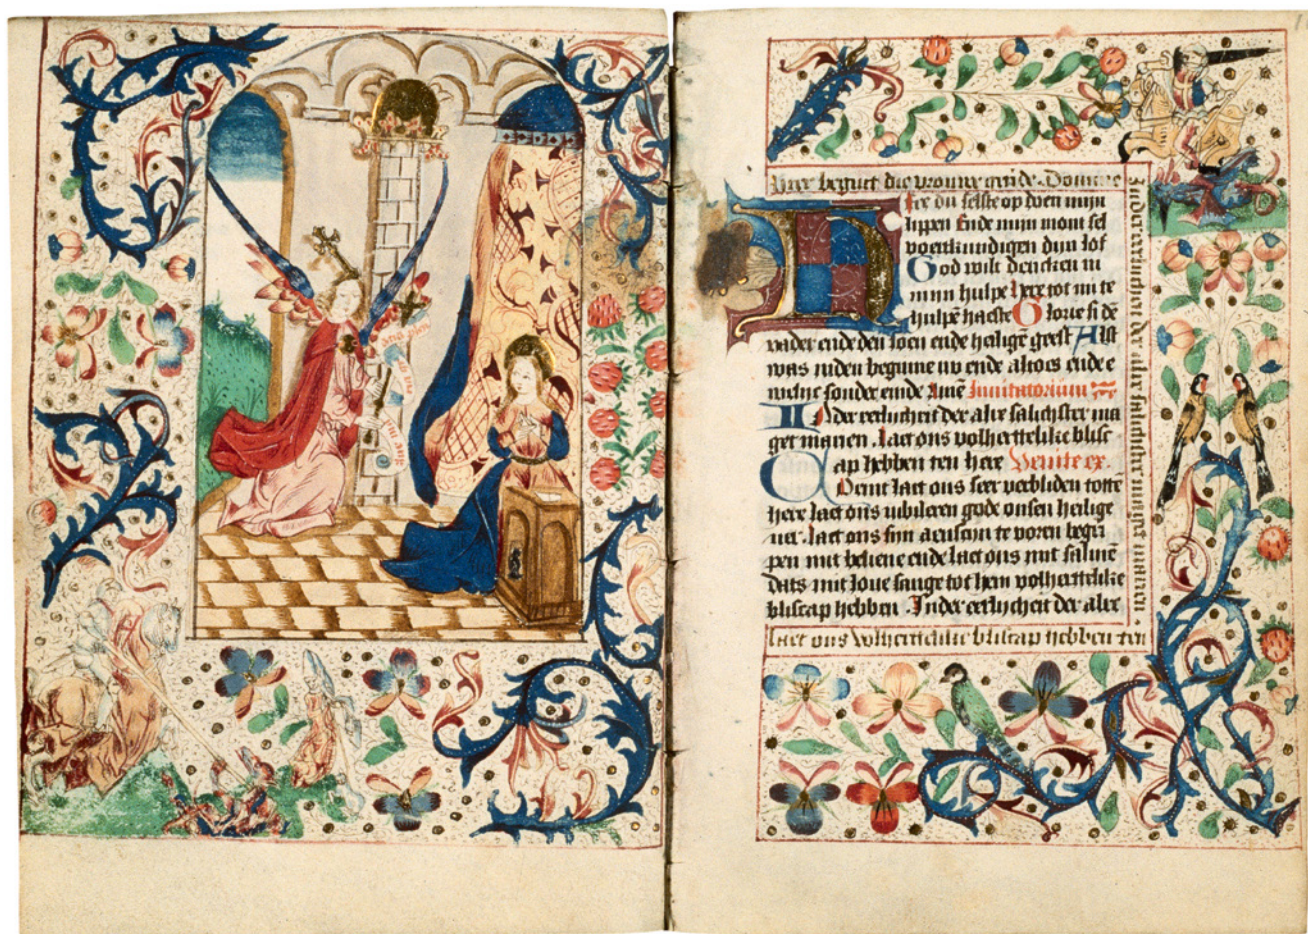 Hier beghīt die vrouwe getide. Domine
Here du selste op doen mijn
lippen Ende mijn mont sel
voertkundigen dijn lof
God wilt dencken in
mijn hulpe Here tot mi te
hulpē haeste Glorie si dē
vader ende den soen ende heilige geest Als
was inden beginne nu ende altoes ende e
welic sonder einde Amē Inuitatorium
In der eerlicheit der alre salichster ma
get marien. Laet ons volhertelike blisc
ap hebben ten here Venite ex.
Coemt laet ons seer verbliden totte
here laet ons iubileren gode onsen heilige
uer. laet ons sijn aenscijn te voren begri
pen mit beliene ende laet ons mit salmē
dats mit loue sange tot hem volhertelike
bliscap hebben. In der eerlicheit der alre
laet ons volhertelike bliscap hebben ten
In der eerlicheit der alre salichster maget marien.